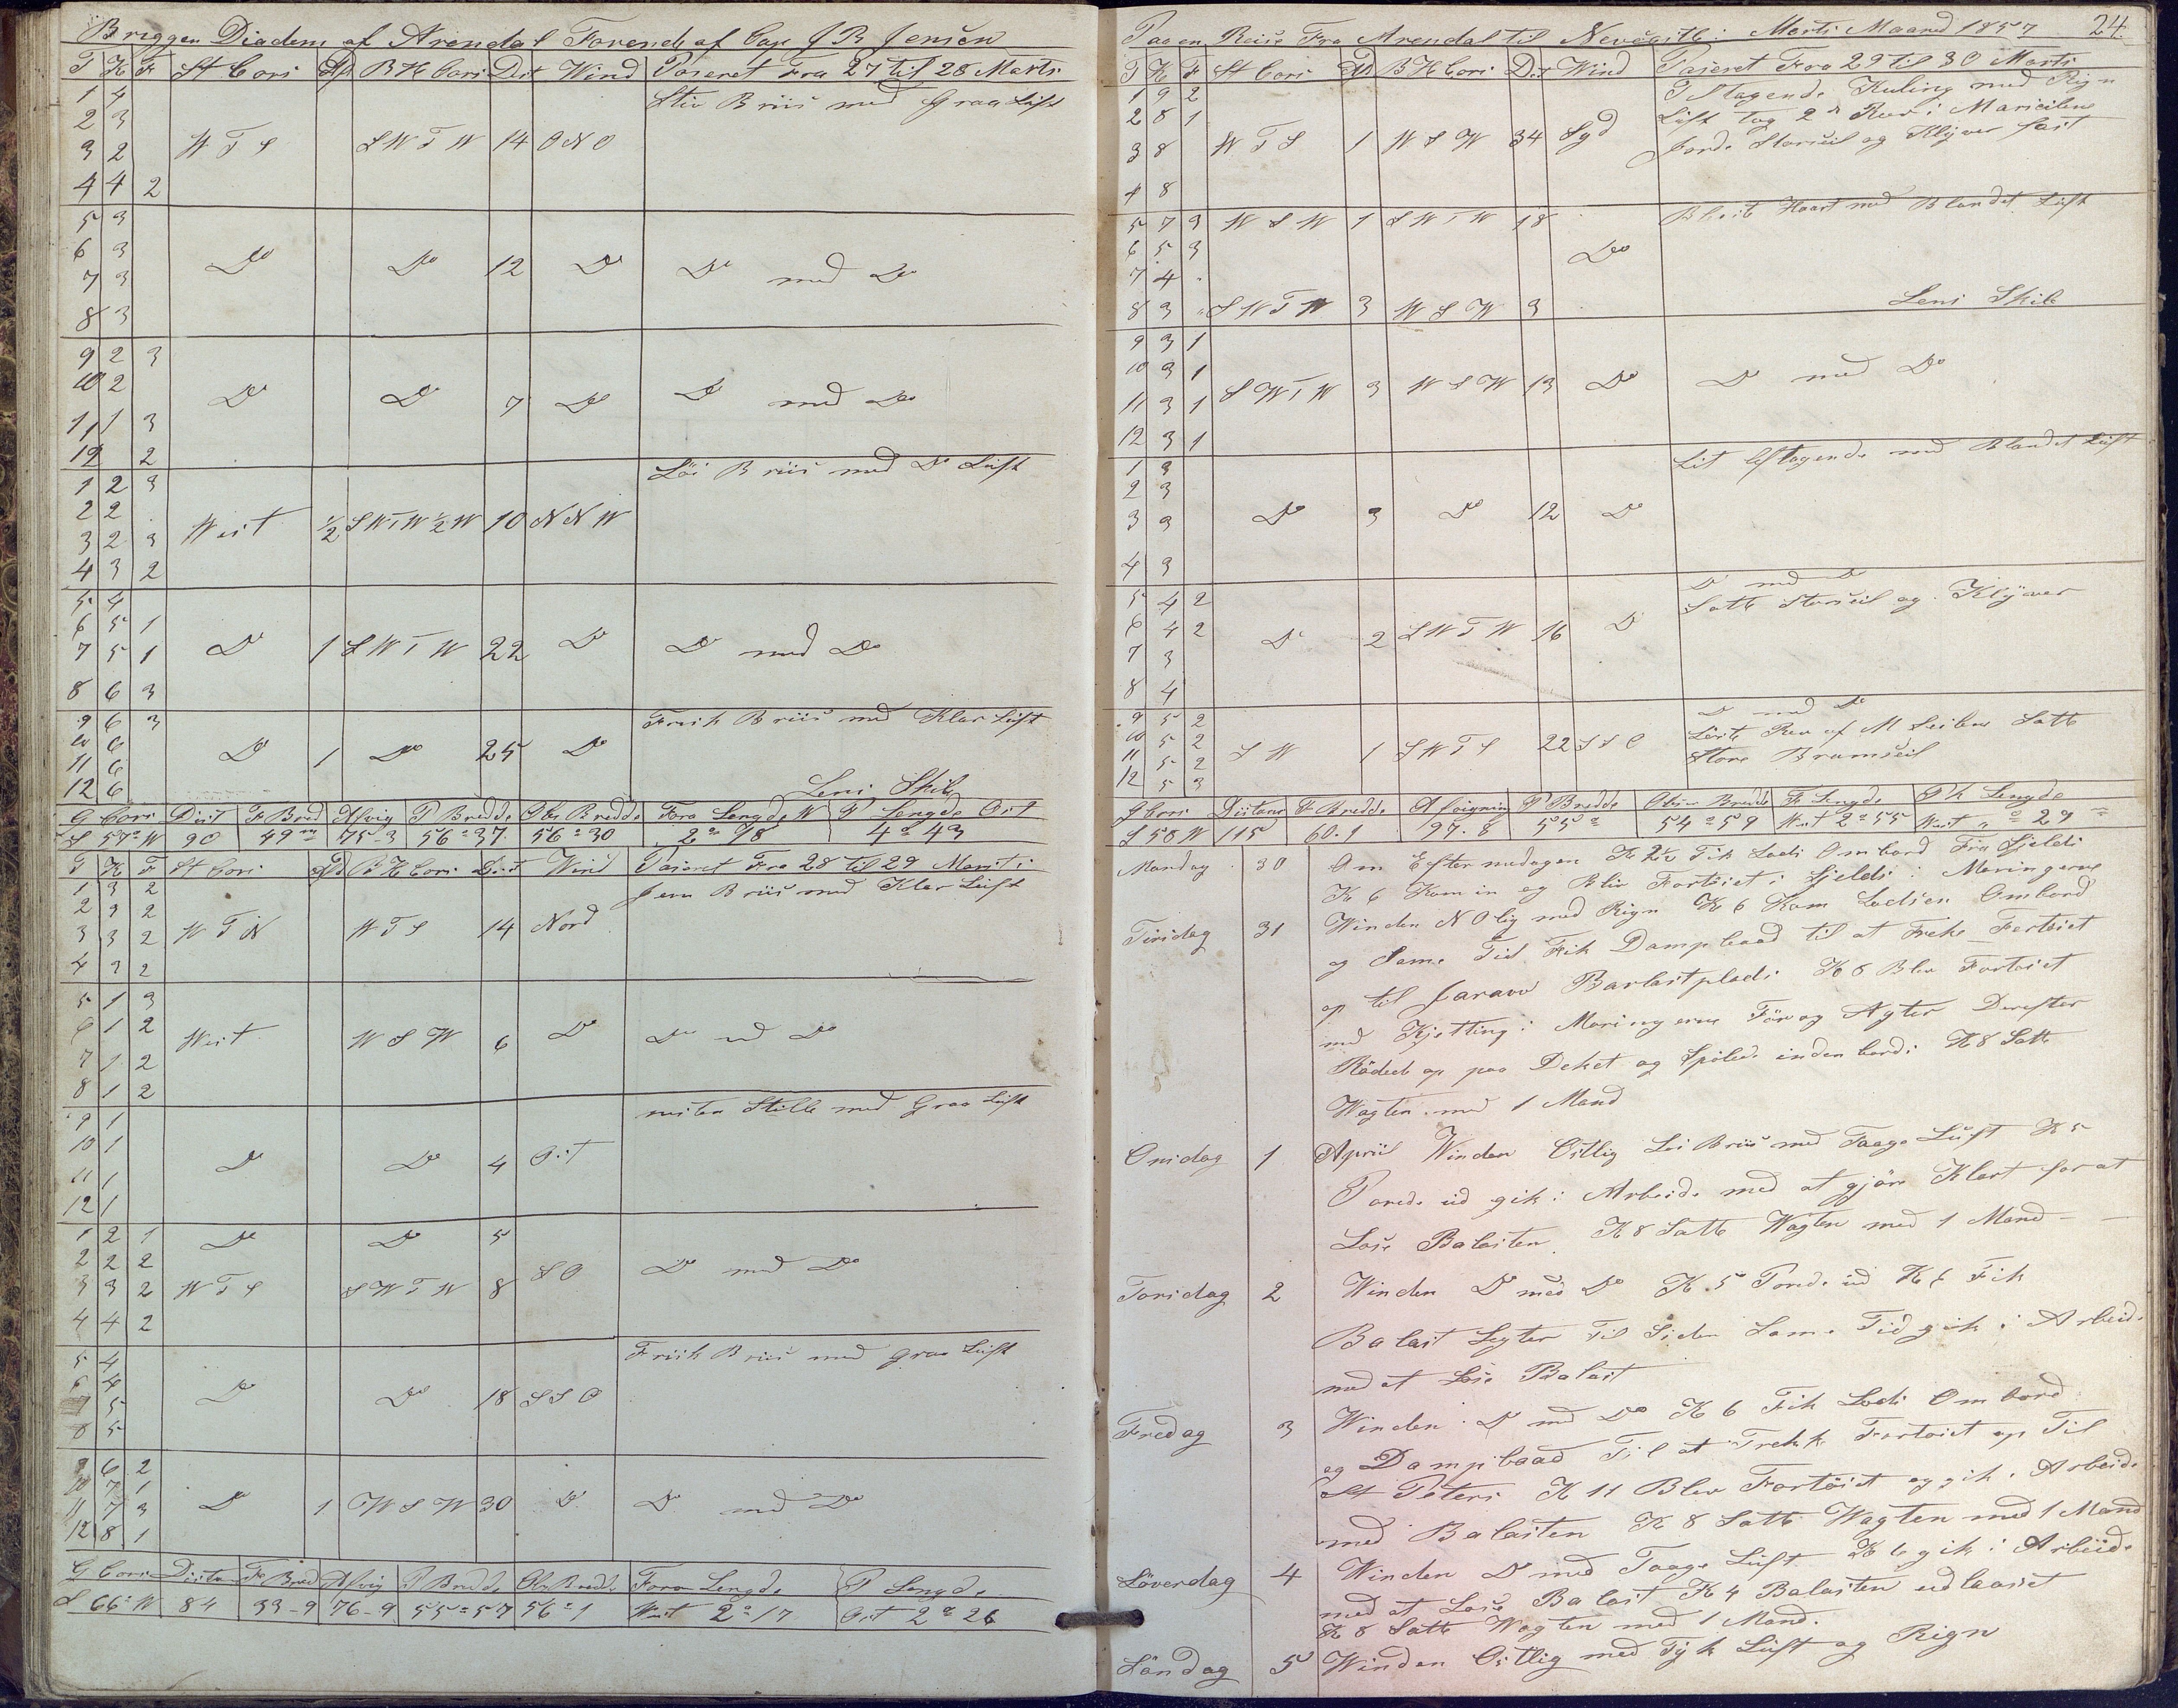 Briggen Diadem af Arendal Förende af Cap J B Jensen
T K F St Cors Afd B H Cors Dist Wind Paseret Fra 27 til 28 Marts
1 4 Stiv Briis med Graa Luft
2 3
3 2 W T S S W T W 14 O N O
4 4 2
5 3
6 3 Do Do 12 Do Do med Do
7 3
8 3
9 2 3
10 2 Do Do 7 Do Do med Do
11 1 3
12 2
Löi Briis med Do Luft
1 2 3
2 2 West ½ S W T W ½ W 10 N N W
3 2 3
4 3 2
5 4
6 5 1
7 5 1 Do 1 S W T W 22 Do Do med Do
8 6 3
9 6 3 Frisk Briis med Klar Luft
10 6 Do 1 Do 25 Do
11 6
12 6 Lens Skib
G Cors Dist F Bred Afvig P Bredde Obs Bredde Fora Lengde W P Lengde Ost
S 57° W 90 49 m 75-3 56°37 56°30 2°18 4°43
T K F St Cors Afd B H Cors Dist Wind Paseret Fra 28 til 29 Marts
1 3 2 Jevn Briis med Klar Luft
2 3 2
3 3 2 W T N W T S 14 Nord
4 3 2
5 1 3
6 1 2 West W S W 6 Do Do med Do
7 1 2
8 1 2
nesten Stille med Graa Luft
9 1
10 1 Do Do 4 Ost
11 1
12 1
1 2 1 Do Do 5
2 2 2 S O Do med Do
3 3 2 W T S S W T W 8
4 4 2
Frisk Briis med graa Luft
5 4
6 4 Do Do 18 S S O
7 5
8 5
9 6 2
10 7 1
11 7 3 Do 1 W S W 30 Do Do med Do
12 8 1
G Cors Distan F Bred Afvig P Bredde Obs Bredde Fora Lengde P Lengde
S 66° W 84 33-9 76-9 55°57 56°1 West 2°17 Ost 2°26
Paa en Reise Fra Arendal til Newcastle i Marts Maaned 1857 24
T K F St Cors Afd B H Cors Dist Wind Paseret Fra 29 til 30 Marts
1 9 2 Tiltagende Kuling med Rign
2 8 1 Luft tog 2 Rev i Marseilene
3 8 W T S 1 W S W 34 Syd Storseil og Klyver fast
4 8
5 7 3 W S W 1 S W T W 18 Bleste Haart med Blandet Luft
6 5 3 Do
7 4
8 3 S W T W 3 W S W 3 Lens Skib
9 3 1
10 3 1 S W T W 3 W S W 13 Do Do med Do
11 3 1
12 3 1
Lit aftagende med Blandet Luft
1 3
2 3
3 3 Do 3 Do 12 Do
4 3
Do med Do
5 4 2 Satte Storseil og Klyver
6 4 2 Do 2 S W T W 16 Do
7 3
8 4
Do med Do
9 5 2 Löste Rev af M Seilene Satte
10 5 2 S W 1 S W T S 22 S S O Store Bramseil
11 5 2
12 5 3
G Cors Distans F Bredde Afvigning P Bredde Obs Bredde F Lengde P Lengde
S 58 W 115 60.1 97.8 55° 54°59 West 2°55 West 29
Mandag 30 Om Eftermedagen K 2½ Fik Lods Ombord Fra Sjelds
K 6 Kom in og Blev Fortöiet i Sjelds i Moringerne
Tirsdag 31 Winden N O lig med Rign K 6 Kom Lodsen Ombord
og Same Tid Fik Dampbaad til at Treke Fartöiet
op til Jaraws Barlastplads K 8 Blev Fortöiet
med Kjetting i Moringerne För og Agter Derefter
Rödede op paa Deket og Spölede indenbords K 8 Satte
Wagten med 1 Mand
Onsdag 1 April Winden Östlig Löi Briis med Taage Luft K 5
Porede ud gik i Arbeide med at gjöre Klart for at
Lose Balasten K 8 Satte Wagten med 1 Mand
Torsdag 2 Winden Do med Do K 5 Porede ud K 6 Fik
Balast Legter Til Siden Same Tid gik i Arbeide
med at Lose Balast
Fredag 3 Winden Do med Do K 6 Fik Lods Ombord
og Dampbaad Til at Trekke Fartöiet op Til
St Peters K 11 Blev Fortöiet og gik i Arbeide
med Balasten K 8 Satte Wagten med 1 Mand
Löverdag 4 Winden Do med Taage Luft K 6 gik i Arbeide
med at Lose Balast K 4 Balasten udlosset
K 8 Satte Wagten med 1 Mand.
Söndag 5 Winden Östlig med Tyk Luft og Rign